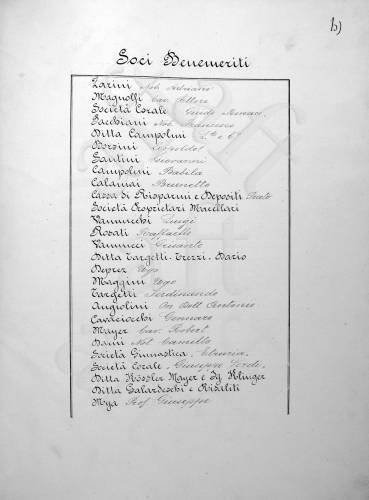 b)
Soci Benemeriti
Zarini Not. Adriano
Magnolfi Cav. Ettore
Società Corale Guido Monaco
Pacchiani Not. Francesco
Ditta Campolmi L. e C.
Borsini Leopoldo
Santini Giovanni
Campolmi Babila
Calamai Brunetto
Cassa di Risparmi e Depositi Prato
Società Proprietari Macellari
Vannucchi Luigi
Rosati Raffaello
Vannucci Giusanto
Ditta Targetti - Trezzi - Dario
Deprez Ugo
Maggini Ugo
Targetti Ferdinando
Angiolini On. Dott. Antonio
Cavaciocchi Gennaro
Mayer Cav. Robert
Dami Not. Camillo
Società Ginnastica Etruria
Società Corale Giuseppe Verdi
Ditta Kössler Mayer e Klinger
Ditta Galardeschi e Risaliti
Mya Prof. Giuseppe